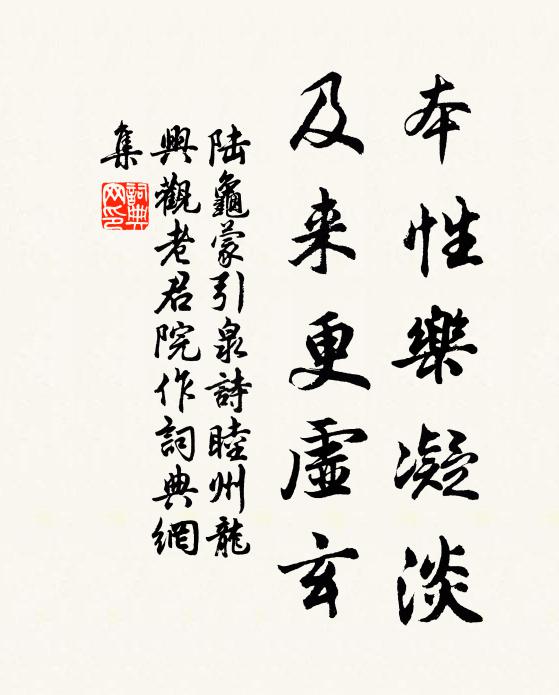 本性樂凝淡
及来更虛玄
陆龜蒙引泉詩睦州龍
興觀老君院作詞典網
集
詞典
网印